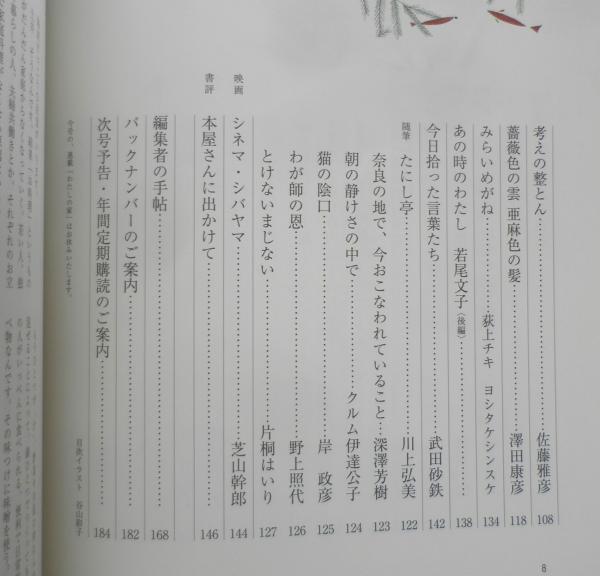 考えの整とん……佐藤雅彦 108
薔薇色の雲 亜麻色の髪……澤田康彦 118
みらいめがね……荻上チキ ヨシタケシンスケ 134
あの時のわたし 若尾文子（後編）……138
今日拾った言葉たち……武田砂鉄 142
随筆 たにし亭……川上弘美 122
奈良の地で、今おこなわれていること……深澤芳樹 123
朝の静けさの中で……クルム伊達公子 124
猫の陰口……岸 政彦 125
わが師の恩……野上照代 126
とけないまじない……片桐はいり 127
映画 シネマ・シバヤマ……芝山幹郎 144
書評 本屋さんに出かけて……146
編集者の手帖……168
バックナンバーのご案内……182
次号予告・年間定期購読のご案内……184
今号の、連載「わたしの家」はお休みいたします。
目次イラスト 谷山彩子
8